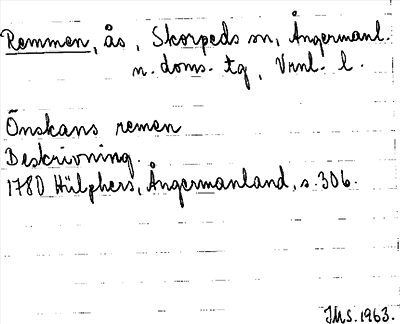 Remmen, ås, Skorpeds sn, Ångermanl.
n. doms. tg, Vrnl. l.
Önskans remen
Beskrivning.
1780 Hülphers, Ångermanland, s. 306.
JhS. 1963.